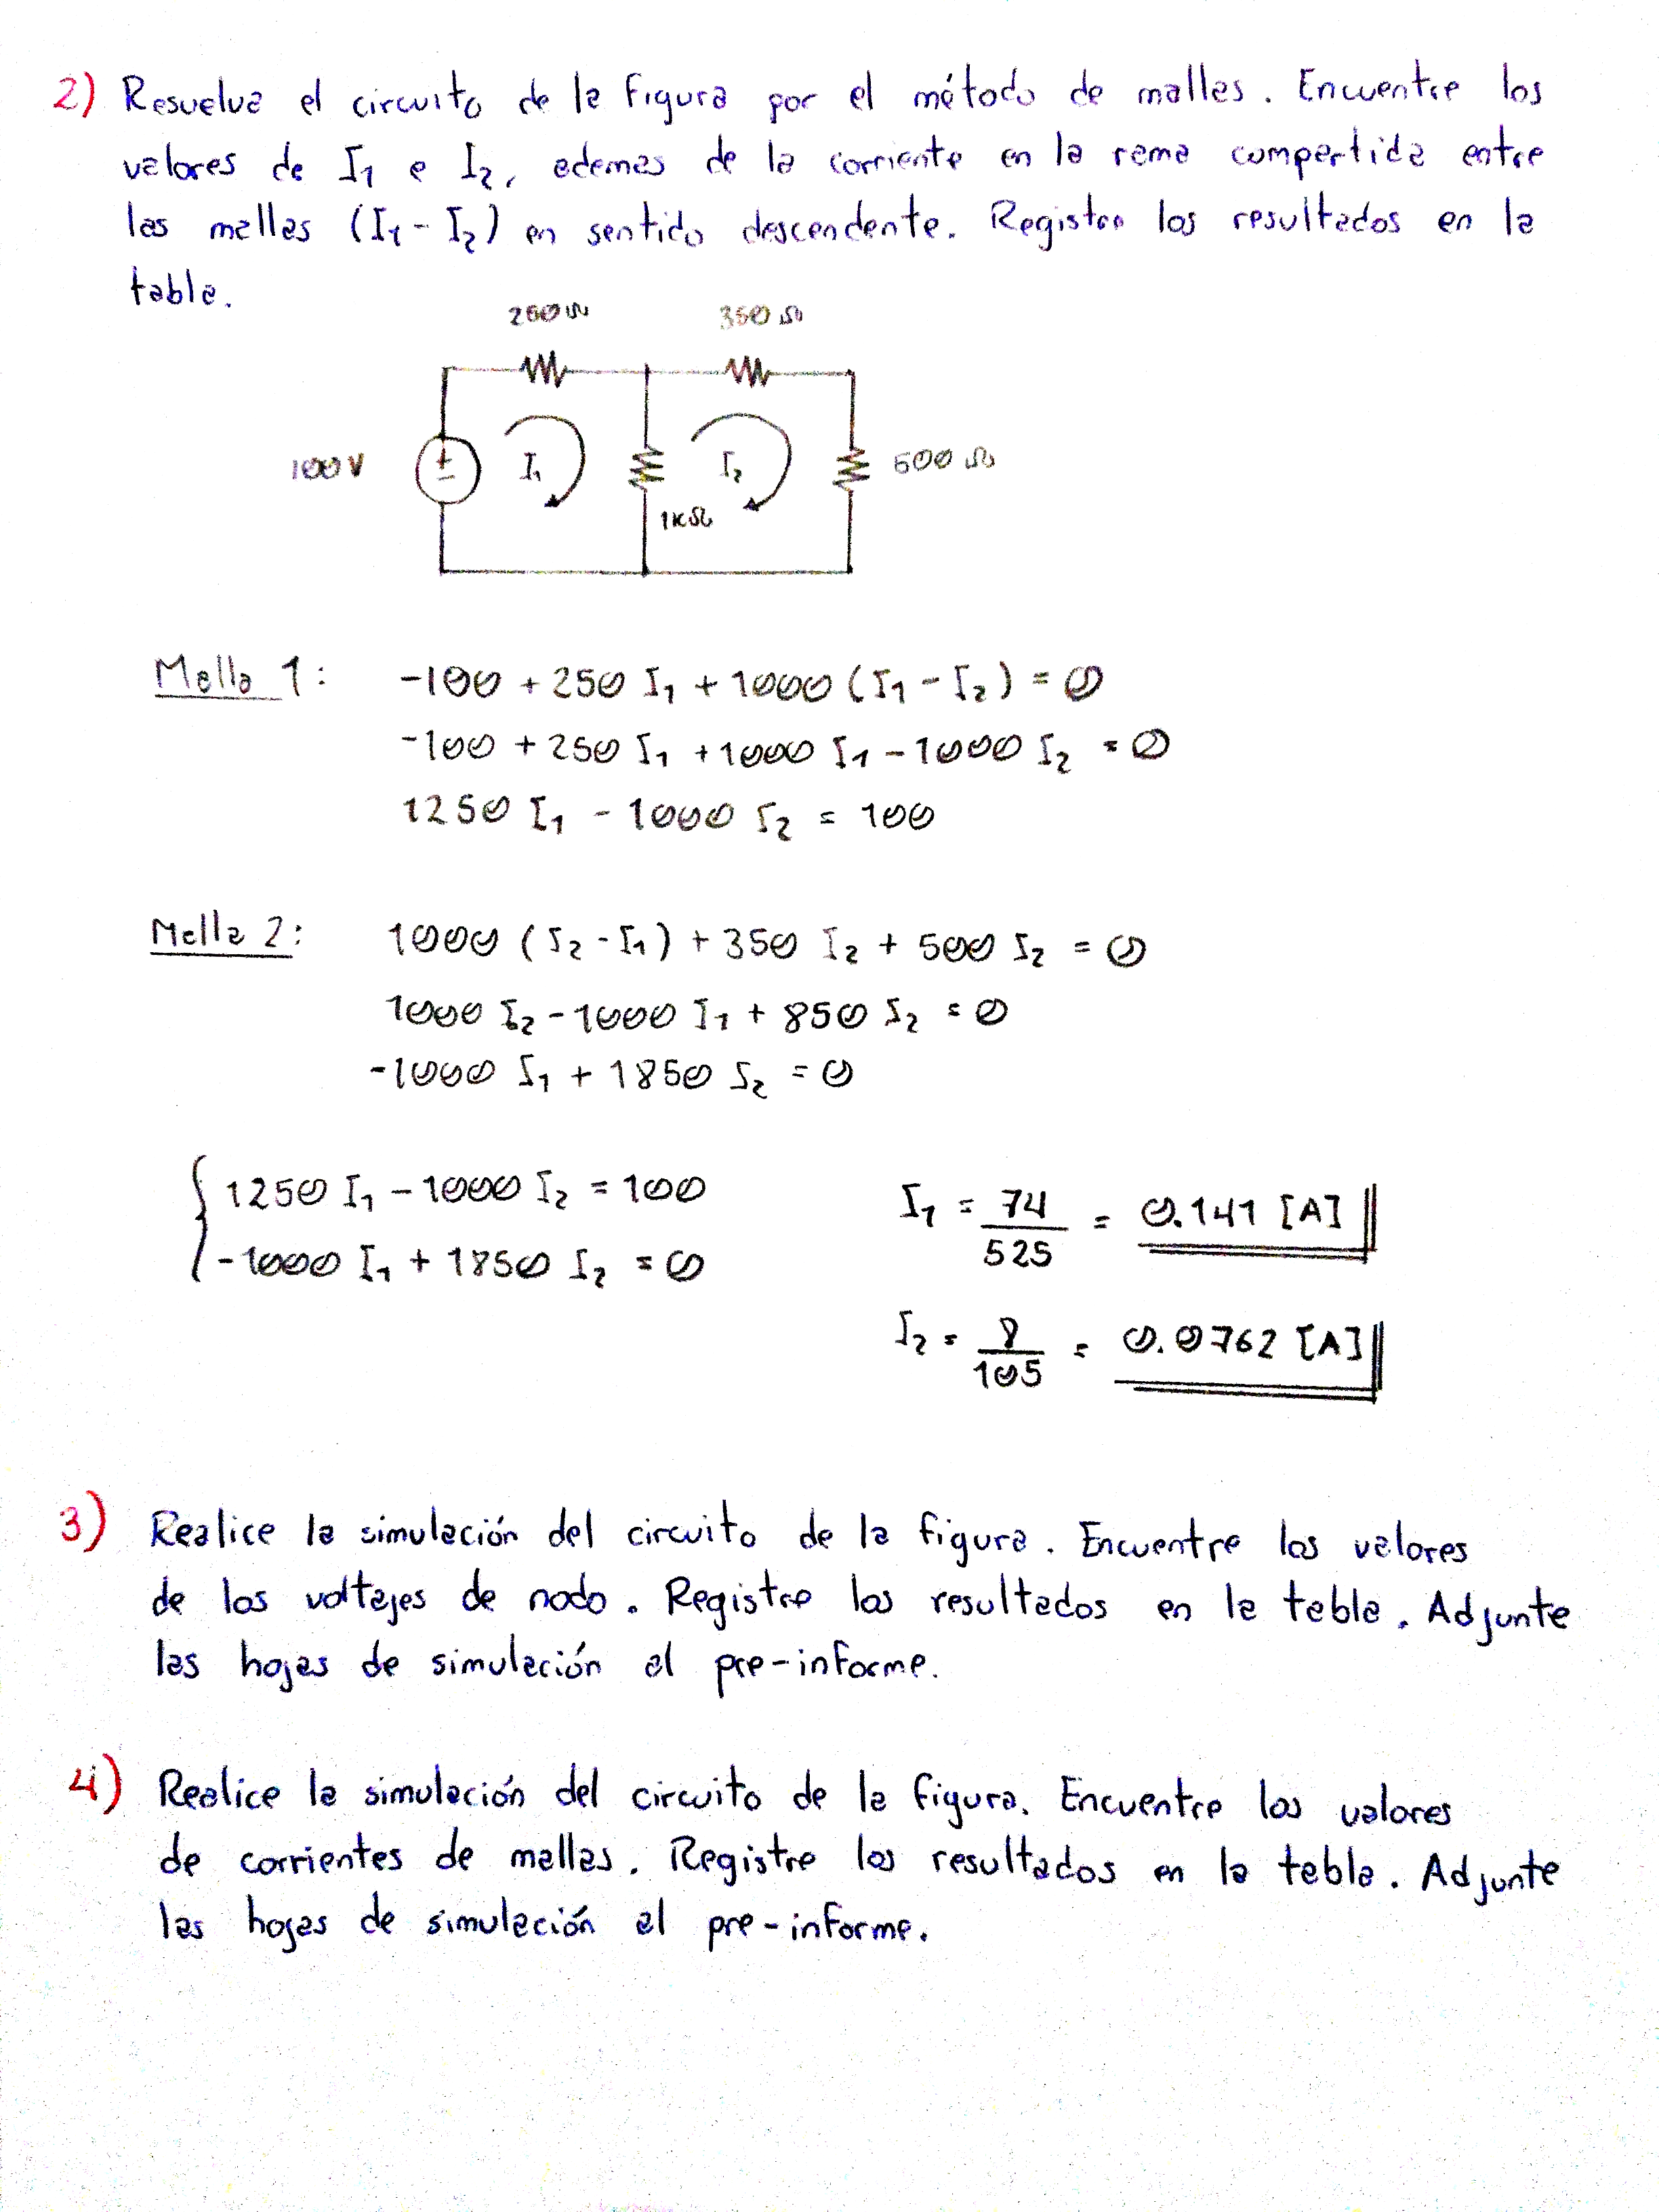 2) Resuelva el circuito de la figura por el método de mallas. Encuentre los
valores de I₁ e I₂, ademas de la corriente en la rama compartida entre
las mallas (I₁ - I₂) en sentido descendente. Registre los resultados en la
tabla.
250 Ω 350 Ω
100 V + - I₁ I₂ 500 Ω
1KΩ
Malla 1: -100 + 250 I₁ + 1000 (I₁ - I₂) = 0
-100 + 250 I₁ + 1000 I₁ - 1000 I₂ = 0
1250 I₁ - 1000 I₂ = 100
Malla 2: 1000 (I₂ - I₁) + 350 I₂ + 500 I₂ = 0
1000 I₂ - 1000 I₁ + 850 I₂ = 0
-1000 I₁ + 1850 I₂ = 0
{ 1250 I₁ - 1000 I₂ = 100
-1000 I₁ + 1850 I₂ = 0
I₁ = 74/525 = 0.141 [A]
I₂ = 8/105 = 0.0762 [A]
3) Realice la simulación del circuito de la figura. Encuentre los valores
de los voltajes de nodo. Registre los resultados en la tabla. Adjunte
las hojas de simulación al pre-informe.
4) Realice la simulación del circuito de la figura. Encuentre los valores
de corrientes de mallas. Registre los resultados en la tabla. Adjunte
las hojas de simulación al pre-informe.